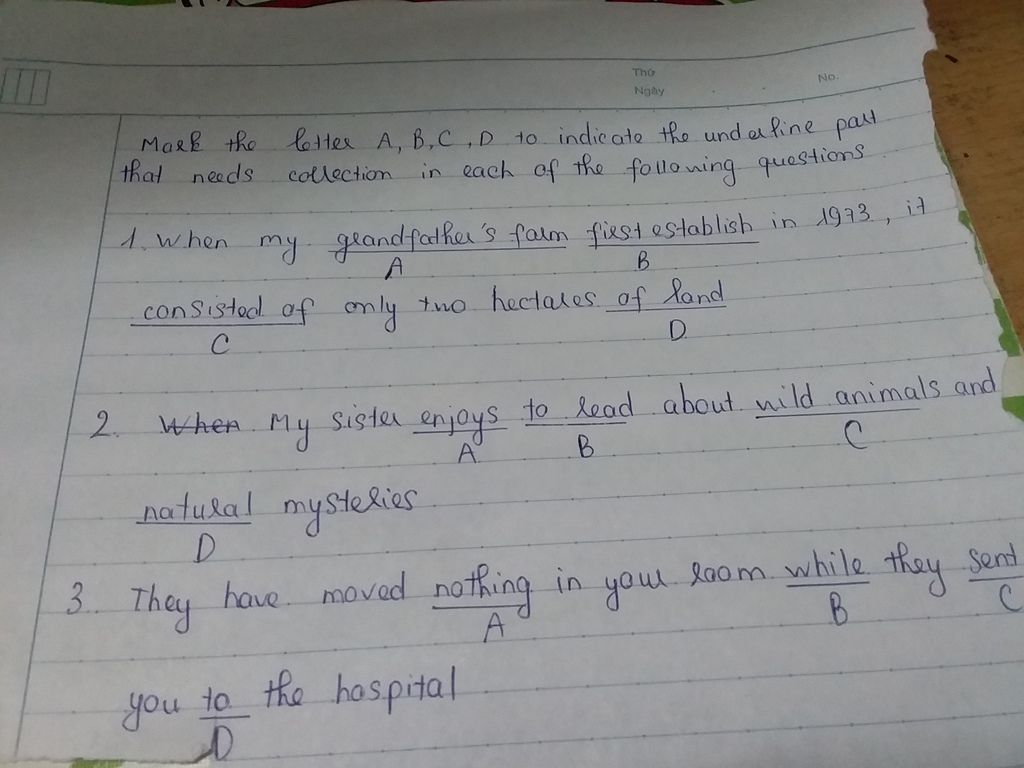 Thứ
Ngày
No.
Mark the letter A, B, C, D to indicate the underline part
that needs correction in each of the following questions
1. When my grandfather's farm first establish in 1973, it
A B
consisted of only two hectares of land
C D
2. When My sister enjoys to read about wild animals and
A B C
natural mysteries
D
3. They have moved nothing in your room while they sent
A B C
you to the hospital
D